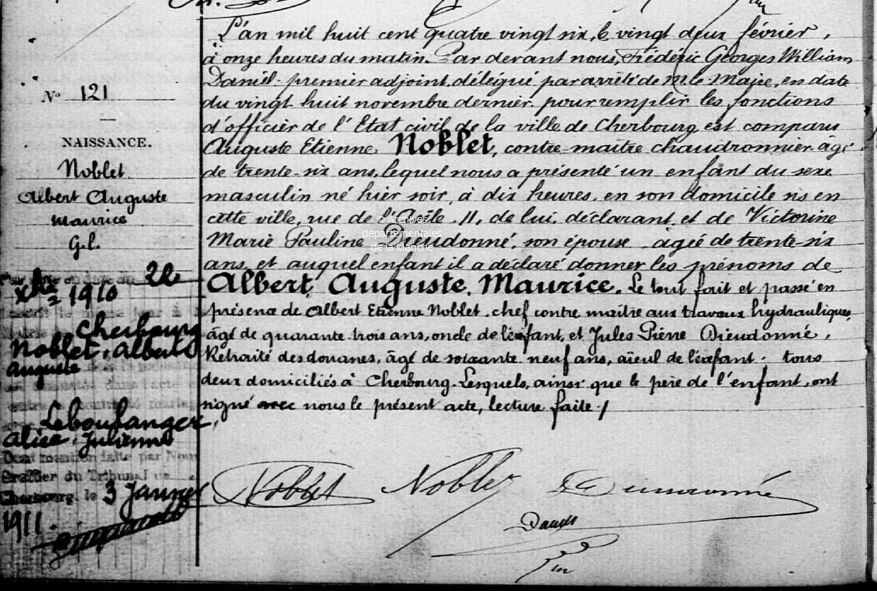 L'an mil huit cent quatre vingt six, le vingt deux février,
à onze heures du matin. Par devant nous, Frédéric Georges William
Daniel, premier adjoint, délégué par arrêté de M. le Maire, en date
du vingt huit novembre dernier pour remplir les fonctions
d'officier de l'Etat civil de la ville de Cherbourg est comparu
Auguste Etienne Noblet, contre-maître chaudronnier agé
de trente-six ans, lequel nous a présenté un enfant du sexe
masculin né hier soir, à dix heures, en son domicile sis en
cette ville, rue de l', 11, de lui, déclarant, et de Victorine
Marie Pauline Dieudonné, son épouse, agée de trente-six
ans, et auquel enfant il a déclaré donner les prénoms de
Albert, Auguste, Maurice. Le tout fait et passé en
présence de Albert Etienne Noblet, chef contre maître aux travaux hydrauliques,
âgé de quarante-trois ans, oncle de l'enfant, et Jules Pierre Dieudonné,
Retraité des douanes, âgé de soixante-neuf ans, aïeul de l'enfant. tous
deux domiciliés à Cherbourg. Lesquels, ainsi que le père de l'enfant, ont
signé avec nous le présent acte, lecture faite./
Noblet Noblet Dieudonné
Daniel
N° 121
NAISSANCE.
Noblet
Albert Auguste
Maurice
G.L.
22
Xbre 1910
Cherbourg
Noblet, Albert
Auguste
Leboulanger
Alice Julienne
Greffier du Tribunal
Cherbourg, le 3 Janvier
1911.
départementales
de la Manche